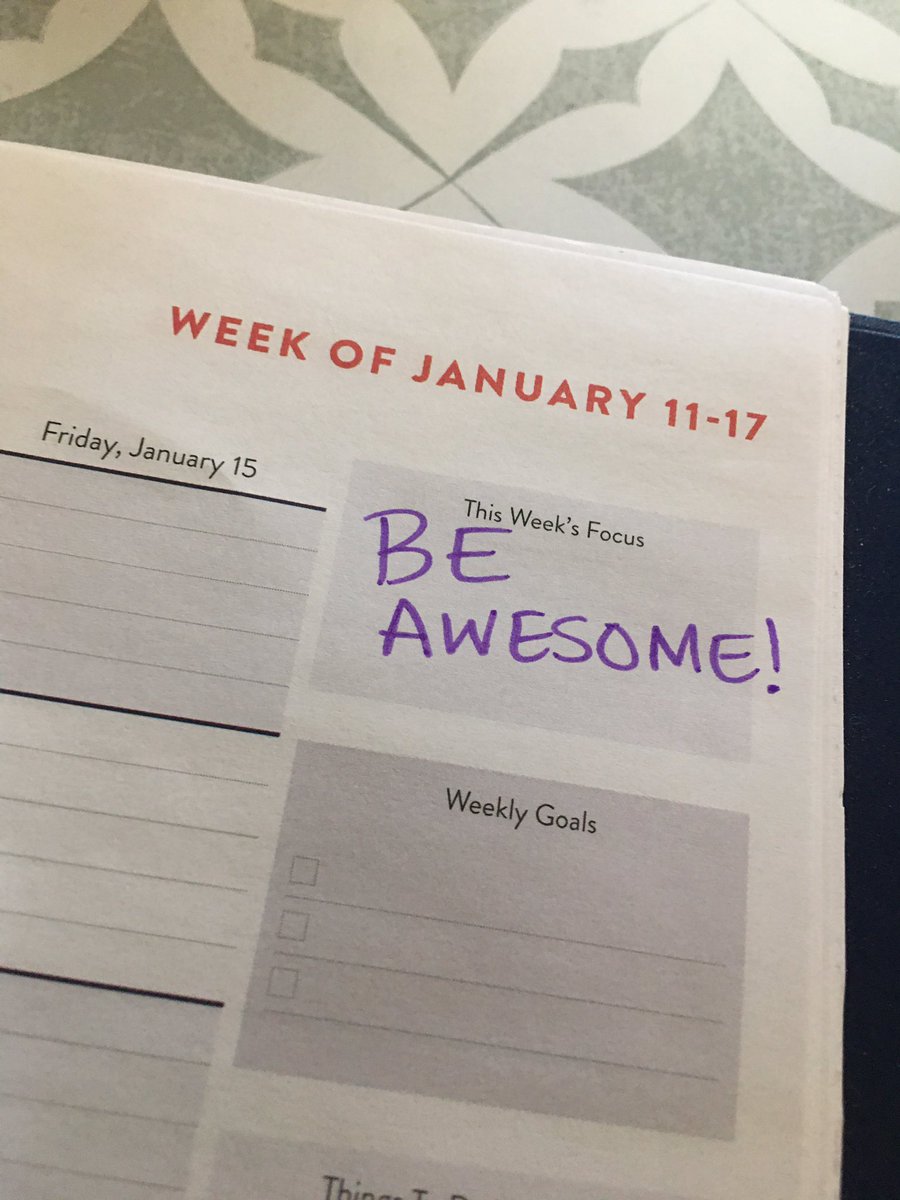 WEEK OF JANUARY 11-17
Friday, January 15
This Week's Focus
BE
AWESOME!
Weekly Goals
Things To